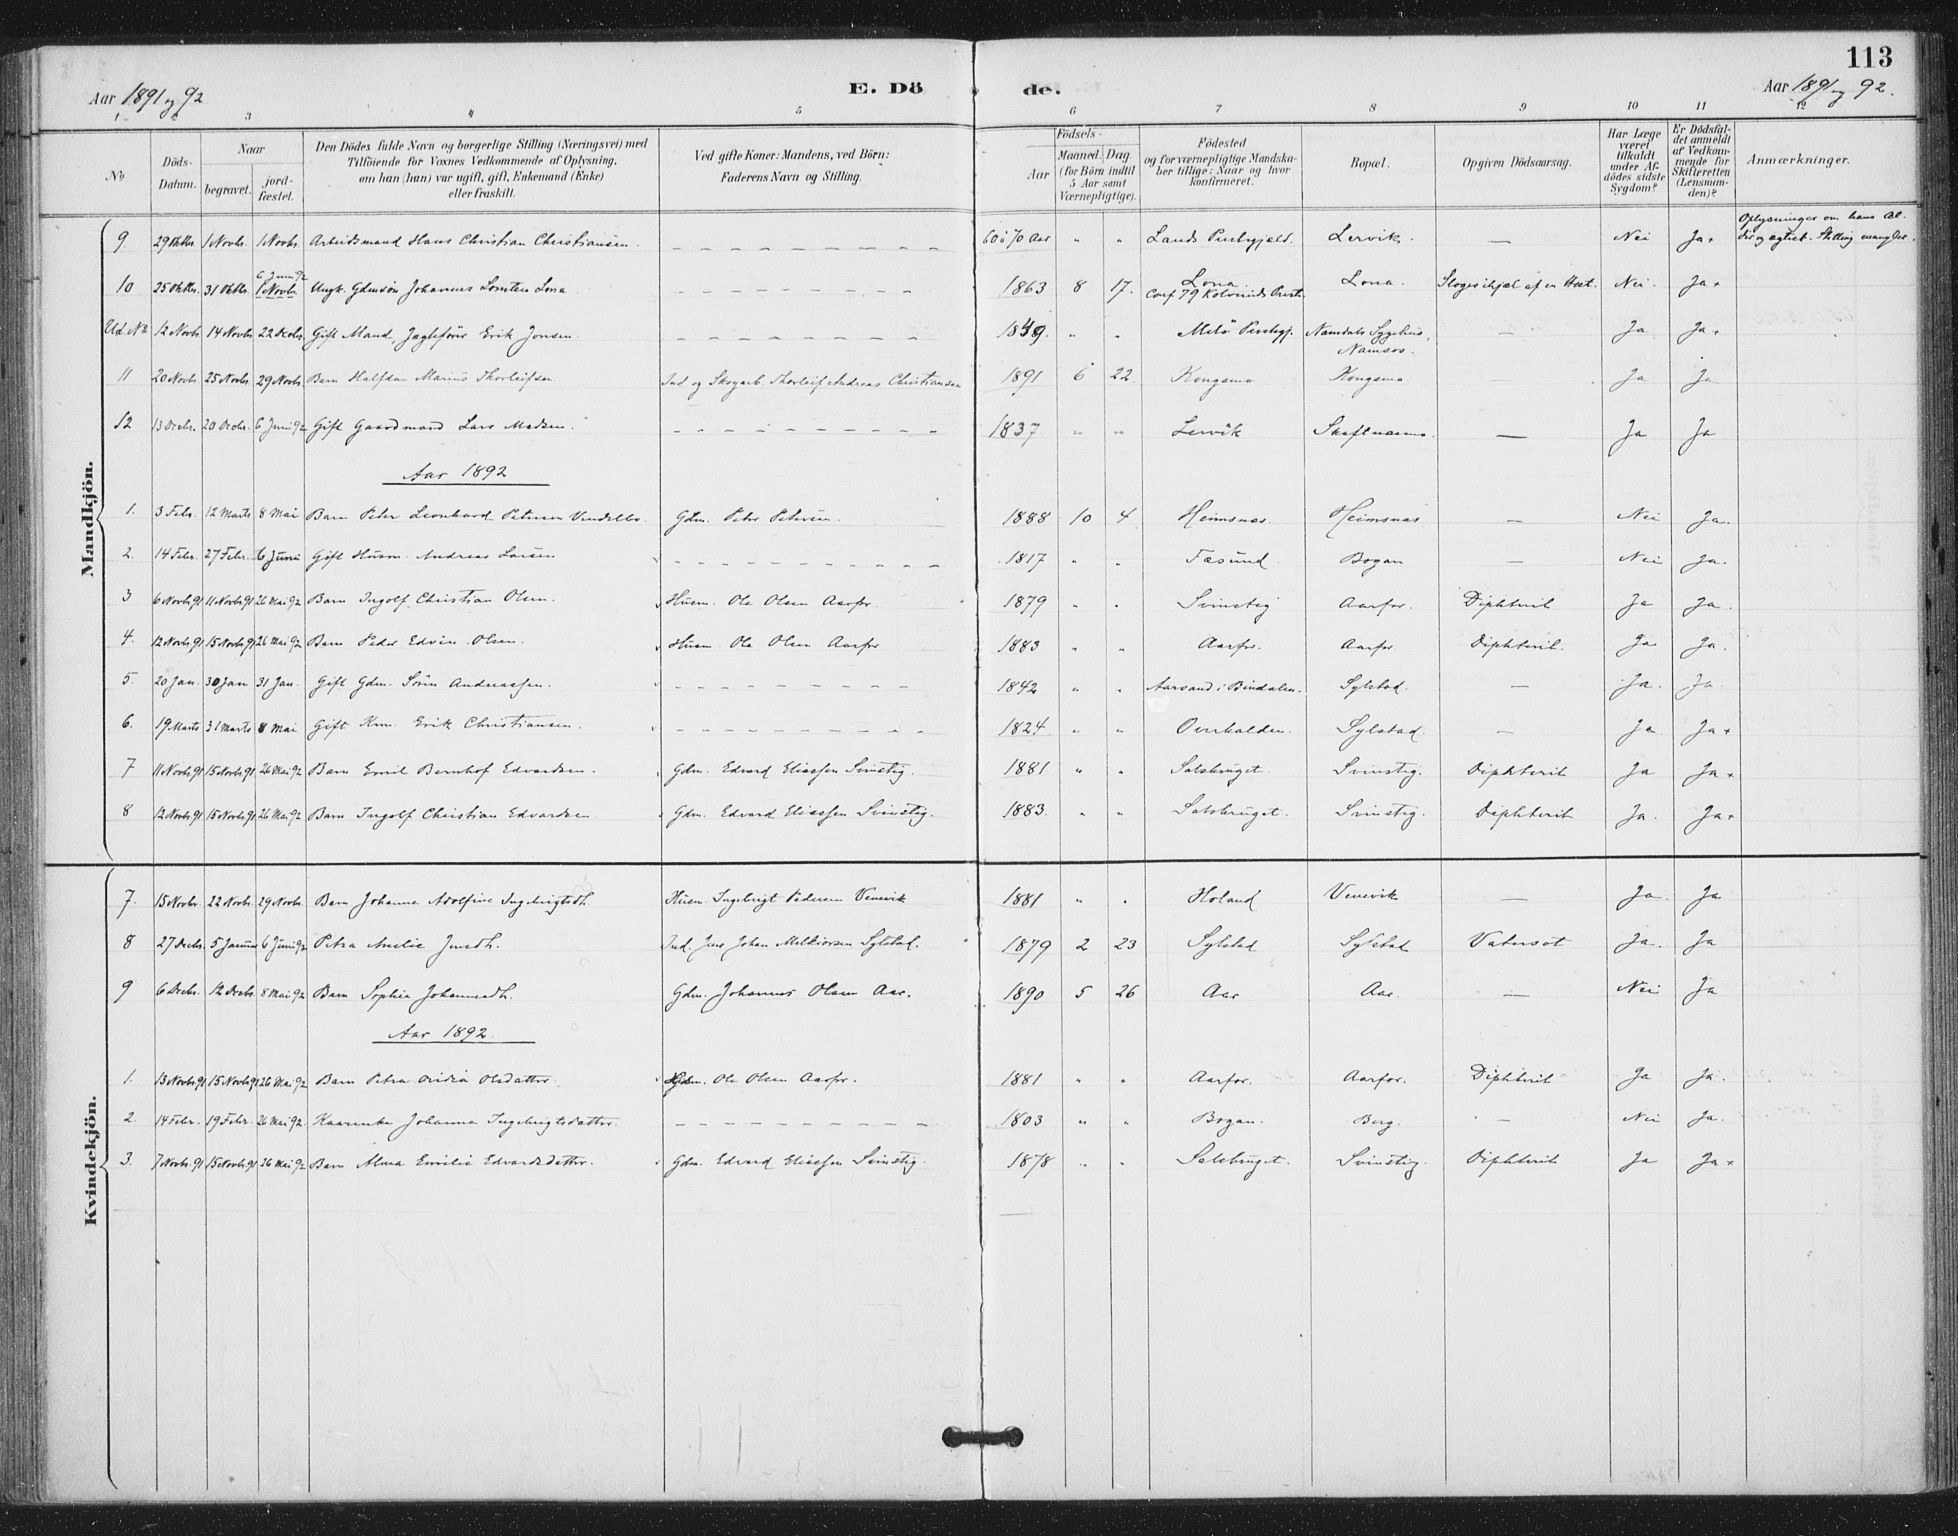 113
Aar 1891 og 92
E. Dö
de.
Aar 1891 og 92.
1 2 3 4 5 6 7 8 9 10 11 12
No
Döds-Datum.
Naar
begravet.
jord-fæstet.
Den Dödes fulde Navn og borgerlige Stilling (Næringsvei) med
Tilföiende for Voxnes Vedkommende af Oplysning,
om han (hun) var ugift, gift, Enkemand (Enke)
eller fraskilt.
Ved gifte Koner: Mandens, ved Börn:
Faderens Navn og Stilling.
Födsels-
Aar
Maaned. Dag.
(for Börn indtil
5 Aar samt
Værnepligtige).
Födested
og for værnepligtige Mandska-
ber tillige: Naar og hvor
konfirmeret.
Bopæl.
Opgiven Dödsaarsag.
Har Læge
været
tilkaldt
under Af-
dödes sidste
Sygdom?
Er Dödsfal-
det anmeldt
af Vedkom-
mende for
Skifteretten
(Lensman-
den)?
Anmærkninger.
Mandkjön.
9. 29 Oktbr. 1 Novbr. 1 Novbr. Arbeidsmand Hans Christian Christiansen. 60 à 70 Aar " " Lands Lervik. — Nei Ja Oplysninger om hans Al-
der og ægtesk. Stilling mangler.
10 25 Oktbr. 31 Oktbr. 6 Juni 92
1 Novbr. Ungk. Gdmsön Johannes Lona 1863 8 17. Lona Lona. af en Hest. Nei. Ja
Conf 79
Ud. No 12 Novbr. 14 Novbr. 22 Decbr. Gift Mand, Jægtefører Erik Jonsen. 1849. " " Namdals Sygehus,
Namsos. — Ja Ja
11 20 Novbr. 25 Novbr. 29 Novbr. Barn Halfdan Marius Thorleifsen Ind og Skogarb. Thorleif Andreas Christiansen 1891 6 22. Kongsmo Kongsmo — Ja Ja
12 13 Decbr. 20 Decbr. 6 Juni 92 Gift Gaardmand Lars Madsen. 1837 " " Lervik Skaftnesmo. — Ja Ja
Aar 1892
1. 3 Febr. 12 Marts 8 Mai Barn Peter Leonhard Petersen Vendelbo. Gdm. Peter Petersen. 1888 10 4 Heimsnes. Heimsnæs — Nei Ja.
2. 14 Febr. 27 Febr. 6 Juni Gift Husm. Andreas Larsen 1817 " " Fæsund. Bogan — Nei Ja.
3 6 Novbr. 91 11 Novbr. 91 26 Mai 92 Barn Ingolf Christian Olsen. Husm. Ole Olsen Aarfor. 1879 " " Svinstig Aarfor. Diphterit Ja Ja.
4. 12 Novbr. 91 15 Novbr. 91 26 Mai 92 Barn Peder Edvin Olsen. Husm Ole Olsen Aarfor 1883 " " Aarfor. Aarfor Diphterit. Ja Ja.
5. 20 Jan. 30 Jan 31 Jan. Gift Gdm. Sörin Andreassen. 1842 " " Aarsand i Bindalen. Sylstad. — Ja. Ja.
6. 19 Marts 31 Marts 8 Mai Gift Erik Christiansen. 1824 " " Overhalden. Sylstad. — Ja Ja
7 11 Novbr. 91 15 Novbr. 91 26 Mai 92 Barn Emil Bernhof Edvardsen. Gdm. Edvard Eliassen Svinstig. 1881 " " Salsbruget. Svinstig. Diphterit Ja Ja
8 12 Novbr. 91 15 Novbr. 91 26 Mai 92 Barn Ingolf Christian Edvardsen Gdm. Edvard Eliassen Svinstig. 1883. " " Salsbruget. Svinstig. Diphterit Ja. Ja
Kvindekjön.
7. 15 Novbr 22 Novbr. 29 Novbr. Barn Johanna Adolfine Ingebrigtsdh. Husm. Ingebrigt Pedersen Venevik 1881 " " Holand Venevik — Ja. Ja
8 27 Decbr. 5 Januar 6 Juni 92 Petra Amelie Jensdh. Ind. Jens Johan Melkiorsen Sylstad. 1879 2 23 Sylstad Sylstad Vatersot Ja. Ja
9 6 Decbr. 12 Decbr. 8 Mai 92 Barn Sophie Johannesdh. Gdm. Johannes Olsen Aar. 1890 5 26 Aar Aar. — Nei Ja
Aar 1892.
1. 13 Novbr. 91 15 Novbr. 91 26 Mai 92 Barn Petra Olsdatter. Ole Olsen Aarfor. 1881 " " Aarfor. Aarfor. Diphterit Ja Ja.
2 14 Febr. 19 Febr. 26 Mai 92. Johanna Ingebrigtsdatter. 1803 " " Bogan. Berg. — Nei Ja.
3. 7 Novbr. 91 15 Novbr. 91 26 Mai 92 Barn Alma Emilie Edvardsdatter. Gdm. Edvard Eliassen Svinstig. 1878 " " Salsbruget. Svinstig. Diphterit Ja Ja